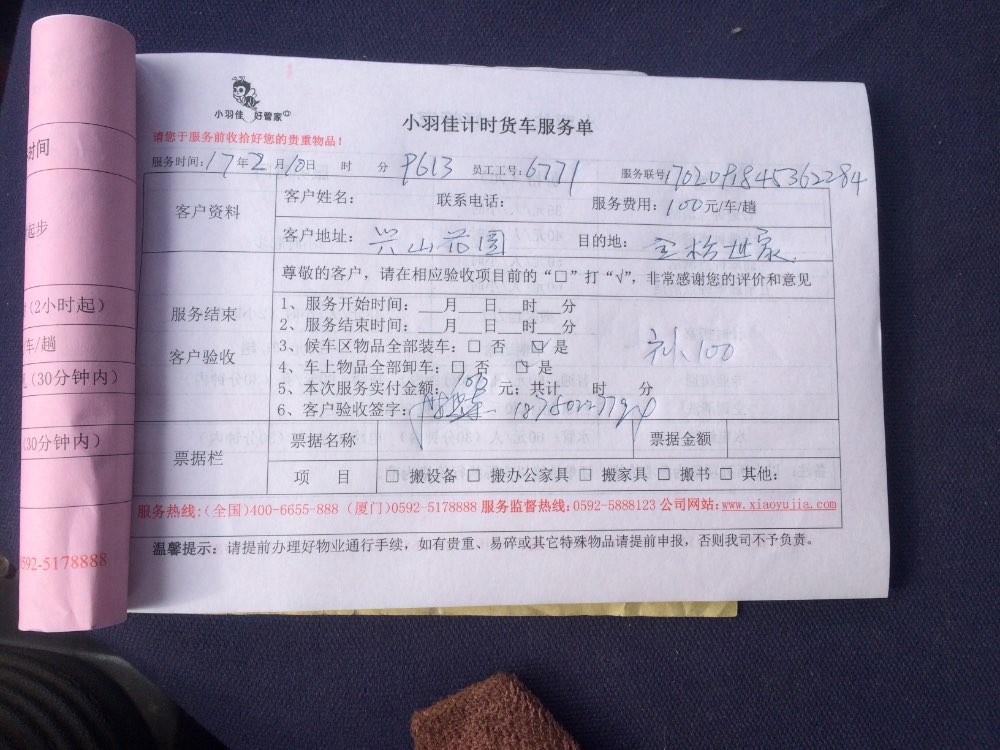 小羽佳 好管家
小羽佳计时货车服务单
请您于服务前收拾好您的贵重物品！
服务时间：17年2月10日 时 分 9613 员工工号：6771 服务联号1702091845362284
客户资料
客户姓名： 联系电话： 服务费用：100元/车/趟
客户地址：兴山花园 目的地：金松世家
服务结束
客户验收
尊敬的客户，请在相应验收项目前的“□”打“√”，非常感谢您的评价和意见
1、服务开始时间：___月___日___时___分
2、服务结束时间：___月___日___时___分
3、候车区物品全部装车：□ 否 □ 是
4、车上物品全部卸车：□ 否 □ 是
5、本次服务实付金额：100元；共计 时 分
6、客户验收签字：
100
票据栏
票据名称 票据金额
项 目 □ 搬设备 □ 搬办公家具 □ 搬家具 □ 搬书 □ 其他：
服务热线：(全国)400-6655-888 (厦门)0592-5178888 服务监督热线：0592-5888123 公司网站：www.xiaoyujia.com
温馨提示：请提前办理好物业通行手续，如有贵重、易碎或其它特殊物品请提前申报，否则我司不予负责。
时间
起步
(2小时起)
车/趟
(30分钟内)
(30分钟内)
0592-5178888